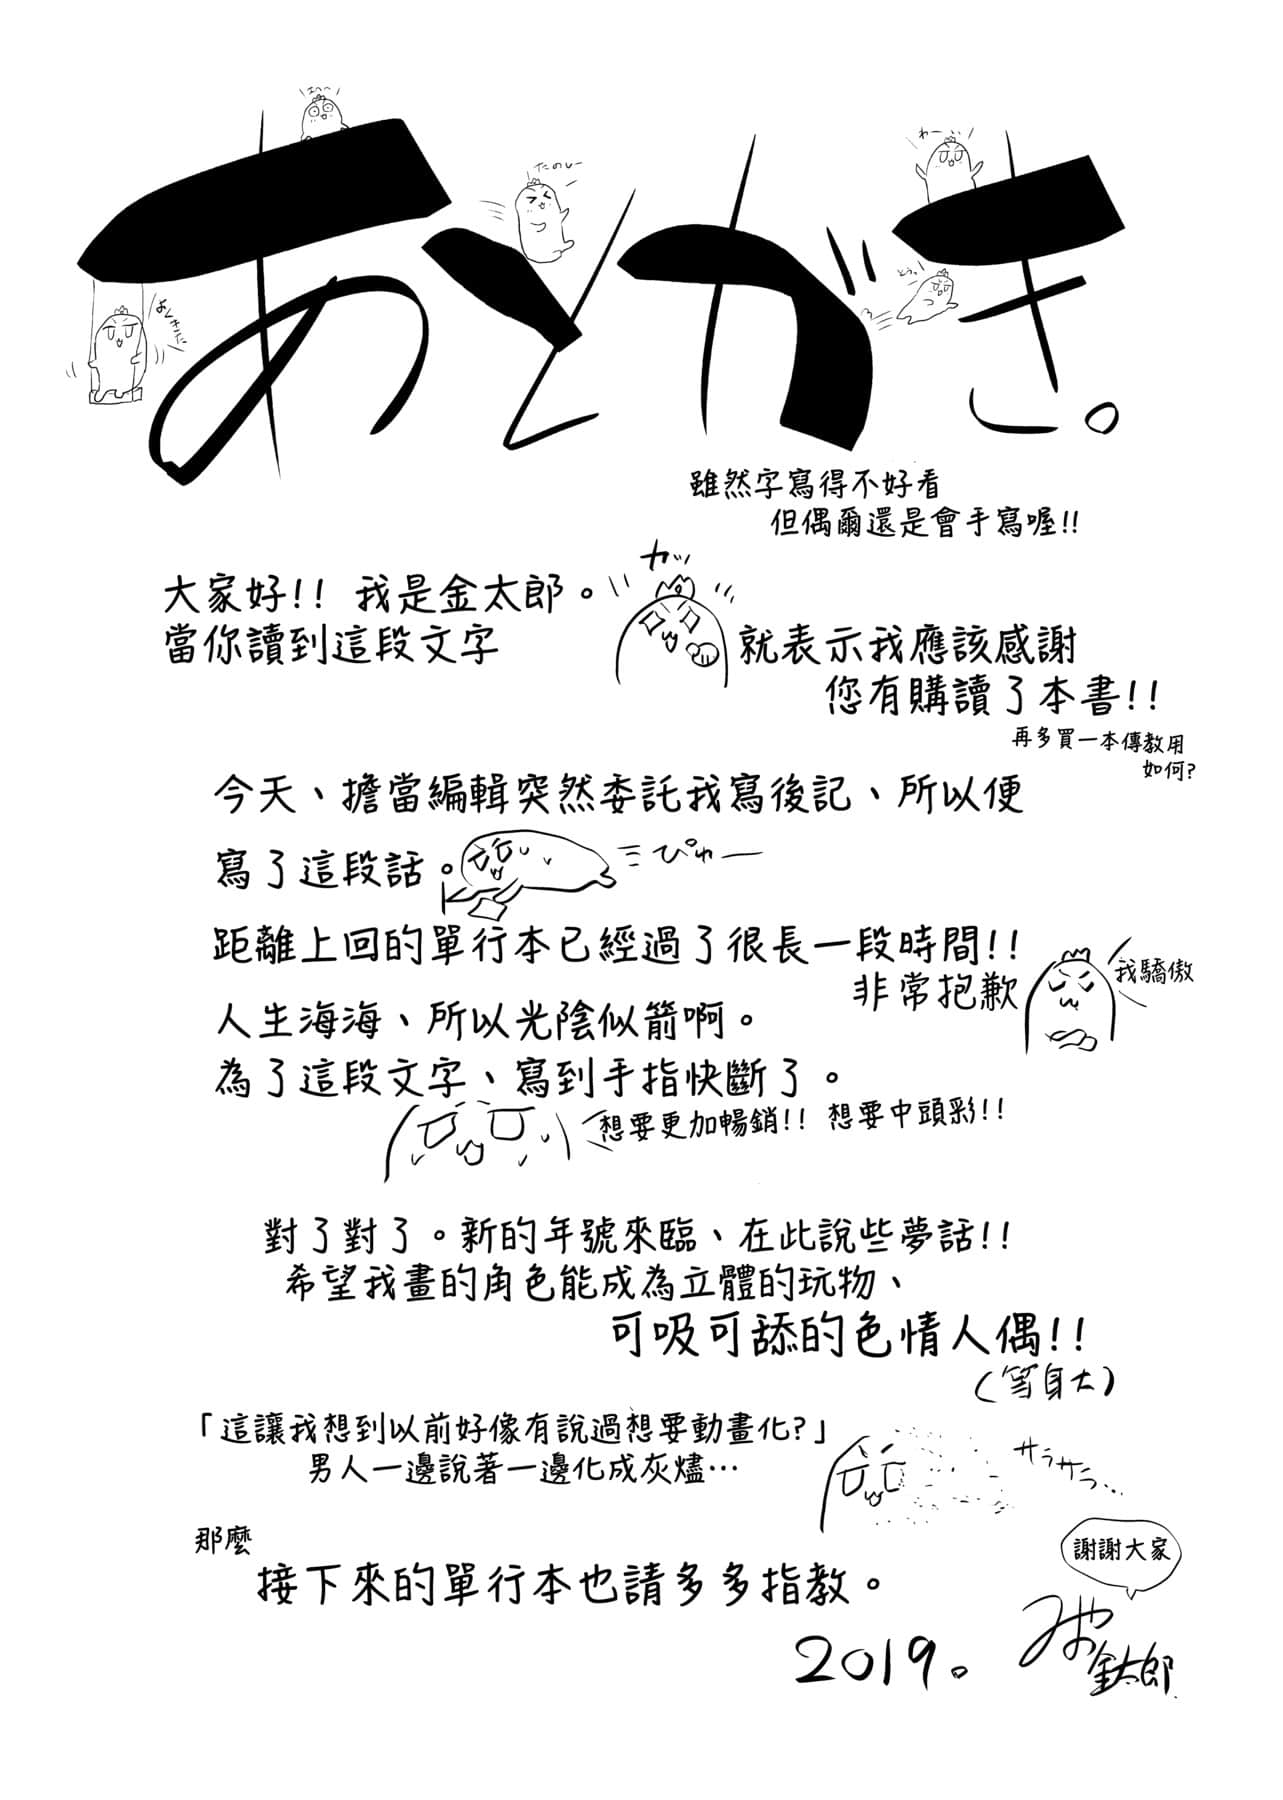 えへへ
たのしー
わーい
とうっ
あとがき。
雖然字寫得不好看
但偶爾還是會手寫喔!!
カッ
大家好!! 我是金太郎。
當你讀到這段文字
就表示我應該感謝
您有購讀了本書!!
再多買一本傳教用
如何?
今天、擔當編輯突然委託我寫後記、所以便
寫了這段話。
ぴゅー
距離上回的單行本已經過了很長一段時間!!
非常抱歉
我驕傲
人生海海、所以光陰似箭啊。
為了這段文字、寫到手指快斷了。
想要更加暢銷!! 想要中頭彩!!
對了對了。新的年號來臨、在此說些夢話!!
希望我畫的角色能成為立體的玩物、
可吸可舔的色情人偶!!
(等身大)
「這讓我想到以前好像有說過想要動畫化?」
男人一邊說著一邊化成灰燼…
サラサラ...
那麼
接下來的單行本也請多多指教。
謝謝大家
2019。
みやお
金太郎